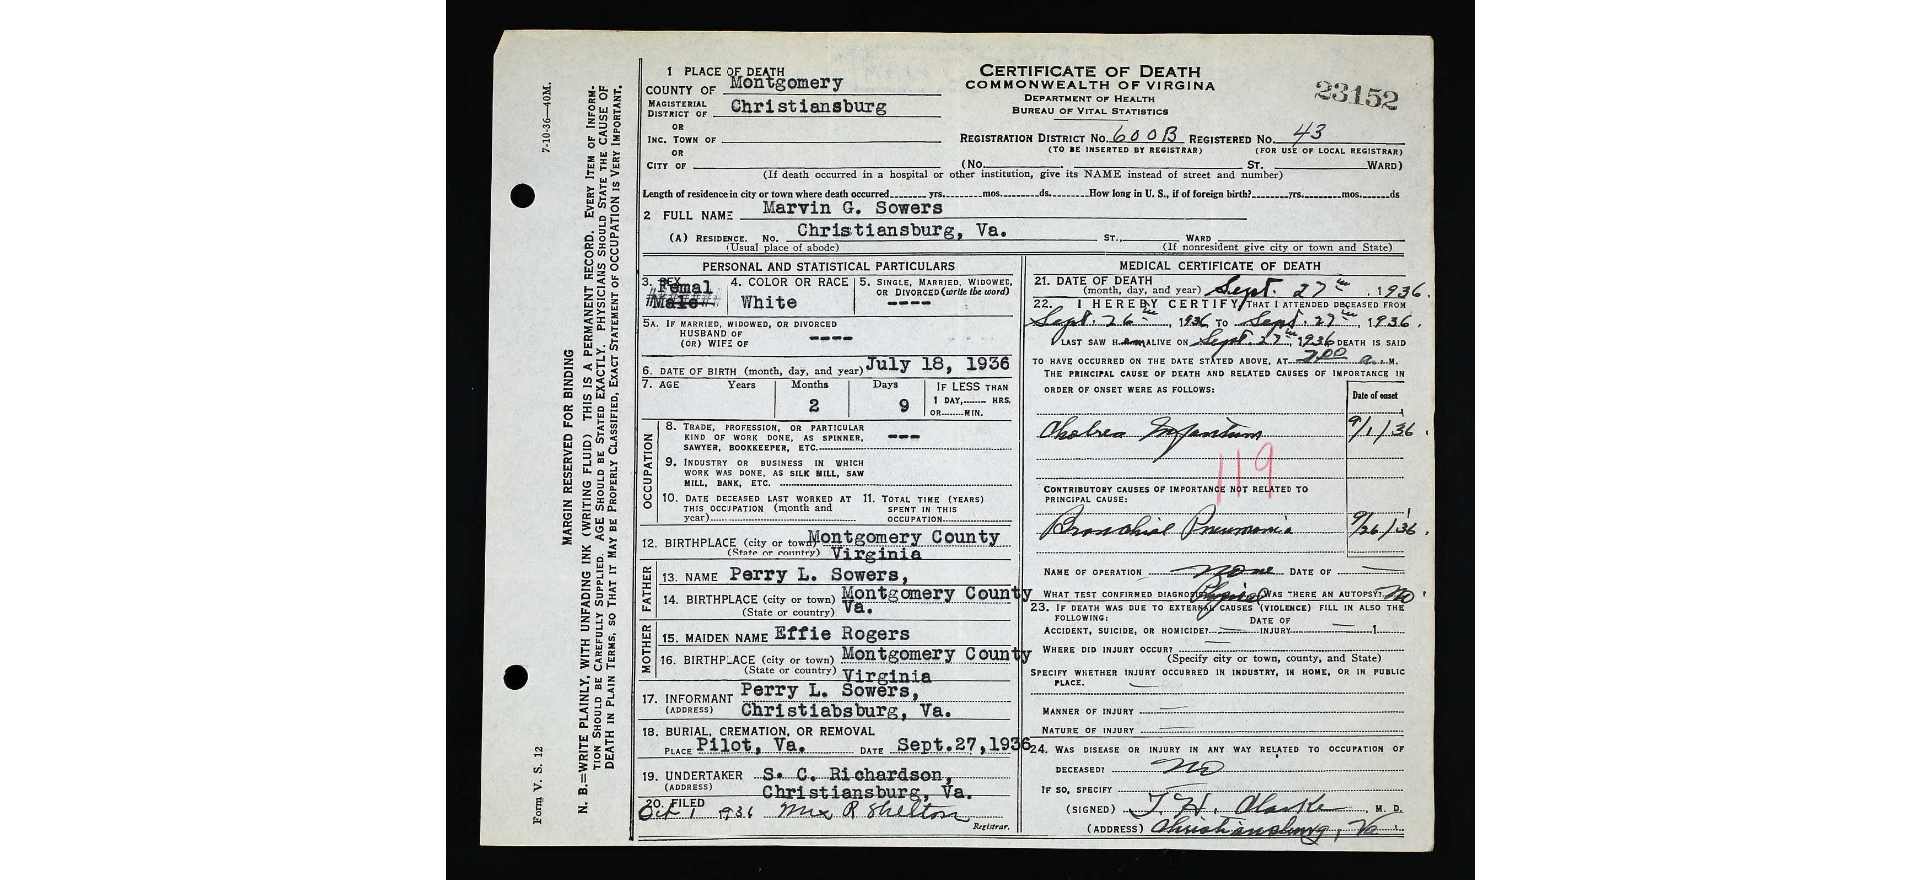 7-10-36—40M.
MARGIN RESERVED FOR BINDING
N. B.=WRITE PLAINLY, WITH UNFADING INK (WRITING FLUID) THIS IS A PERMANENT RECORD. EVERY ITEM OF INFORM-
TION SHOULD BE CAREFULLY SUPPLIED. AGE SHOULD BE STATED EXACTLY. PHYSICIANS SHOULD STATE THE CAUSE OF
DEATH IN PLAIN TERMS, SO THAT IT MAY BE PROPERLY CLASSIFIED, EXACT STATEMENT OF OCCUPATION IS VERY IMPORTANT.
Form V. S. 12
CERTIFICATE OF DEATH
COMMONWEALTH OF VIRGINIA
DEPARTMENT OF HEALTH
BUREAU OF VITAL STATISTICS
23152
1 PLACE OF DEATH
COUNTY OF Montgomery
MAGISTERIAL
DISTRICT OF Christiansburg
OR
INC. TOWN OF
OR
CITY OF
REGISTRATION DISTRICT No. 600B REGISTERED No. 43
(TO BE INSERTED BY REGISTRAR) (FOR USE OF LOCAL REGISTRAR)
(No. ST. WARD)
(If death occurred in a hospital or other institution, give its NAME instead of street and number)
Length of residence in city or town where death occurred yrs. mos. ds. How long in U. S., if of foreign birth? yrs. mos. ds
2 FULL NAME Marvin G. Sowers
(A) RESIDENCE. No. Christiansburg, Va. ST., WARD
(Usual place of abode) (If nonresident give city or town and State)
PERSONAL AND STATISTICAL PARTICULARS
3. SEX Femal
Male
4. COLOR OR RACE
White
5. SINGLE, MARRIED, WIDOWED,
OR DIVORCED (write the word)
----
5A. IF MARRIED, WIDOWED, OR DIVORCED
HUSBAND OF
(OR) WIFE OF ----
6. DATE OF BIRTH (month, day, and year) July 18, 1936
7. AGE Years Months Days IF LESS THAN
1 DAY, HRS.
OR MIN.
2 9
OCCUPATION
8. TRADE, PROFESSION, OR PARTICULAR
KIND OF WORK DONE, AS SPINNER,
SAWYER, BOOKKEEPER, ETC. ---
9. INDUSTRY OR BUSINESS IN WHICH
WORK WAS DONE, AS SILK MILL, SAW
MILL, BANK, ETC.
10. DATE DECEASED LAST WORKED AT
THIS OCCUPATION (month and
year)
11. TOTAL TIME (YEARS)
SPENT IN THIS
OCCUPATION
12. BIRTHPLACE (city or town) Montgomery County
(State or country) Virginia
FATHER
13. NAME Perry L. Sowers,
14. BIRTHPLACE (city or town) Montgomery County
(State or country) Va.
MOTHER
15. MAIDEN NAME Effie Rogers
16. BIRTHPLACE (city or town) Montgomery County
(State or country) Virginia
17. INFORMANT Perry L. Sowers,
(ADDRESS) Christiabsburg, Va.
18. BURIAL, CREMATION, OR REMOVAL
PLACE Pilot, Va. DATE Sept.27,1936
19. UNDERTAKER S. C. Richardson,
(ADDRESS) Christiansburg, Va.
20. FILED
Oct 1 1936 Mrs R Shelton
Registrar.
MEDICAL CERTIFICATE OF DEATH
21. DATE OF DEATH
(month, day, and year) Sept. 27th, 1936.
22. I HEREBY CERTIFY, THAT I ATTENDED DECEASED FROM
Sept. 26th, 1936 TO Sept. 27th, 1936.
LAST SAW H em ALIVE ON Sept. 27th, 1936 DEATH IS SAID
TO HAVE OCCURRED ON THE DATE STATED ABOVE, AT 2:00 a. M.
THE PRINCIPAL CAUSE OF DEATH AND RELATED CAUSES OF IMPORTANCE IN
ORDER OF ONSET WERE AS FOLLOWS:
Date of onset
Cholrea Infantum 9/1/36.
119
CONTRIBUTORY CAUSES OF IMPORTANCE NOT RELATED TO
PRINCIPAL CAUSE:
Bronchial Pneumonia 9/26/36.
NAME OF OPERATION none DATE OF
WHAT TEST CONFIRMED DIAGNOSIS Physical WAS THERE AN AUTOPSY? No
23. IF DEATH WAS DUE TO EXTERNAL CAUSES (VIOLENCE) FILL IN ALSO THE
FOLLOWING:
DATE OF
ACCIDENT, SUICIDE, OR HOMICIDE? INJURY 1
WHERE DID INJURY OCCUR?
(Specify city or town, county, and State)
SPECIFY WHETHER INJURY OCCURRED IN INDUSTRY, IN HOME, OR IN PUBLIC
PLACE.
MANNER OF INJURY
NATURE OF INJURY
24. WAS DISEASE OR INJURY IN ANY WAY RELATED TO OCCUPATION OF
DECEASED? No
IF SO, SPECIFY
(SIGNED) T. H. Clarke, M. D.
(ADDRESS) Christiansburg, Va.